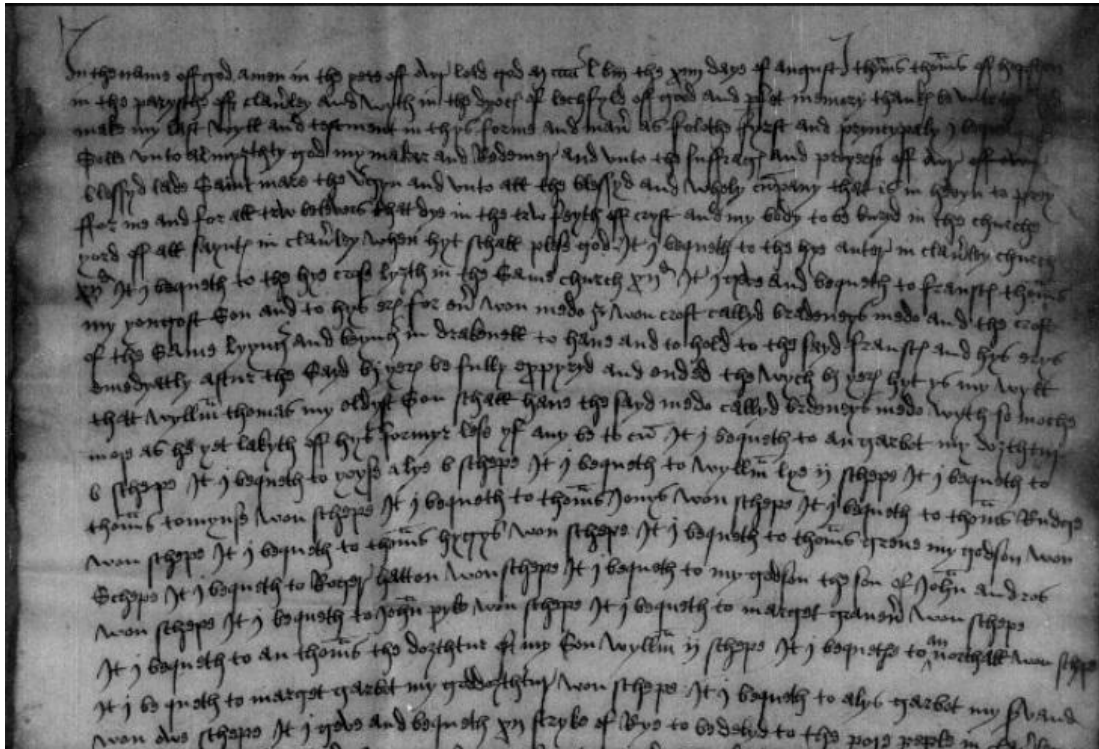 In the name off god amen in the yere off owr lord god m cccc l viii the xiiii daye of august I thom̄s thom̄s of
in the parysche off claverley and wyth in the dyoc of lechfyld off god and memory thank be unto
make my last wyll and testment in thys forme and man̄ as foloth fyrst and pryncypaly I
Solle unto almyghty god my maker and Redemer and unto the suffrag and preyers off owr off
blessyd lade Saint mare the vgyn and unto all the blessyd and wholy cu̅pany that is in hevyn to prey
ffor me and for all trw belevers that dye in the trw feyth off cryst and my body to be buryd in the churche
yord off all saynt in clav̄ley when hyt schall plese god It I bequeth to the hye auter in clav̄ley church
xii d It I bequeth to the hye crose lyght in the Same church xii d It I geve and bequeth to franse thom̄s
my yongost Son and to hys for ev̄ won medo & won croft callyd bradeneys medo and the croft
of the Same lyyng and beyng in drakenell to have and to hold to the sayd franse and hys erys
emedyatly aftur the Sayd vj yer be fully expyryd and ended the wych vj yer hyt ys my wyll
that wyllm̄ thomas my oldyst Son schall have the sayd medo callyd brdeneys medo wyth so moche
more as he yet lakyth off hys formyr lese yf any be to cu̅ It I bequeth to an̄ garbet my doghtur
v schepe It I bequeth to yoyse alye v schepe It I bequeth to wyllm̄ lye ij schepe It I bequeth to
thom̄s tomynse won schepe It I bequeth to thom̄s Jonys won schepe It I bequeth to thom̄s
won schepe It I bequeth to thom̄s hyggys won schepe It I bequeth to thom̄s grene my godson won
Schepe It I bequeth to Roger hatton won schepe It I bequeth to my godson the son of John̄ andros
won schepe It I bequeth to John̄ pyke won schepe It I bequeth to marget won schepe
It I bequeth to an thom̄s the doghtur of my Son wyllm̄ ij schepe It I bequethe to an̄ northall won schepe
It I be queth to marget garbet my goddoghtur won schepe It I bequeth to alys garbet my s̄vand
won owe schepe It I geve and bequeth xii stryke of Rye to be delyd to the pore peple in